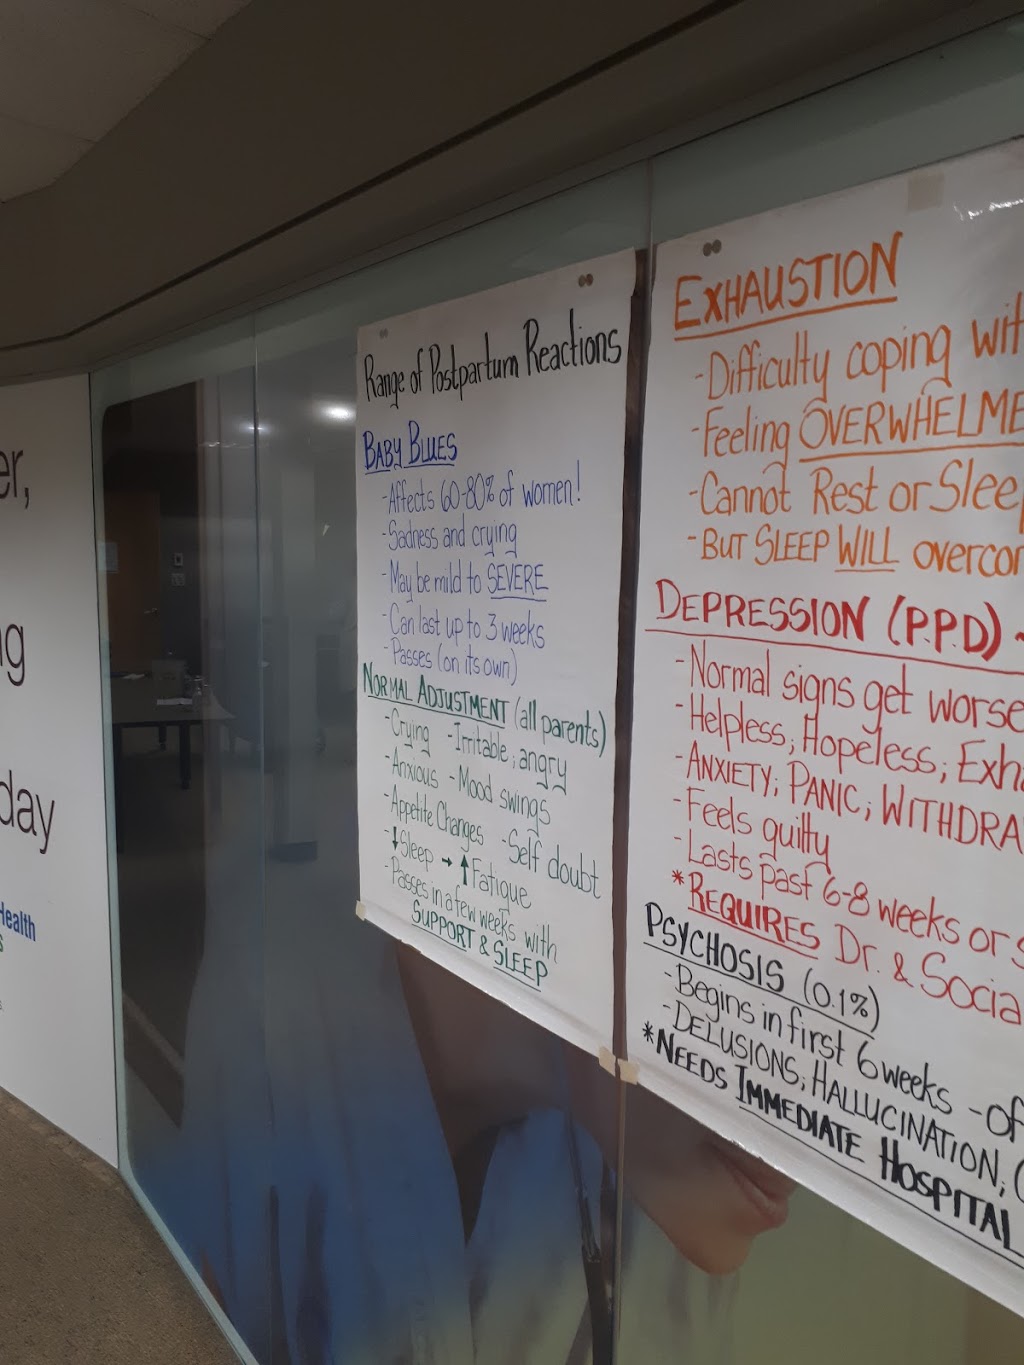 Range of Postpartum Reactions
BABY BLUES
-Affects 60-80% of women!
-Sadness and crying
-May be mild to SEVERE
-Can last up to 3 weeks
-Passes (on its own)
NORMAL ADJUSTMENT (all parents)
-Crying -Irritable, angry
-Anxious -Mood swings
-Appetite Changes -Self doubt
-↓Sleep → ↑Fatigue
-Passes in a few weeks with
SUPPORT & SLEEP
EXHAUSTION
-Difficulty coping wit
-Feeling OVERWHELME
-Cannot Rest or Slee
-BUT SLEEP WILL overcor
DEPRESSION (P.P.D) ~
-Normal signs get worse
-Helpless, Hopeless, Exha
-ANXIETY, PANIC, WITHDRA
-Feels guilty
-Lasts past 6-8 weeks or s
*REQUIRES Dr. & Socia
PSYCHOSIS (0.1%)
-Begins in first 6 weeks -of
-DELUSIONS, HALLUCINATION, (
*NEEDS IMMEDIATE HOSPITAL
er,
ng
day
Health
s